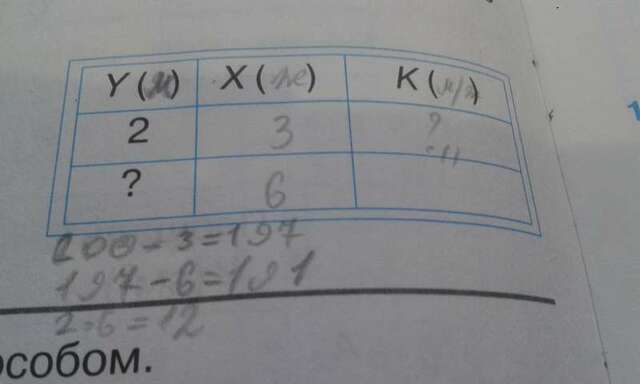 Y (м) X ( ) К (м/ )
2 3 ?
? 6
200 - 3 = 197
197 - 6 = 191
2·6 = 12
особом.